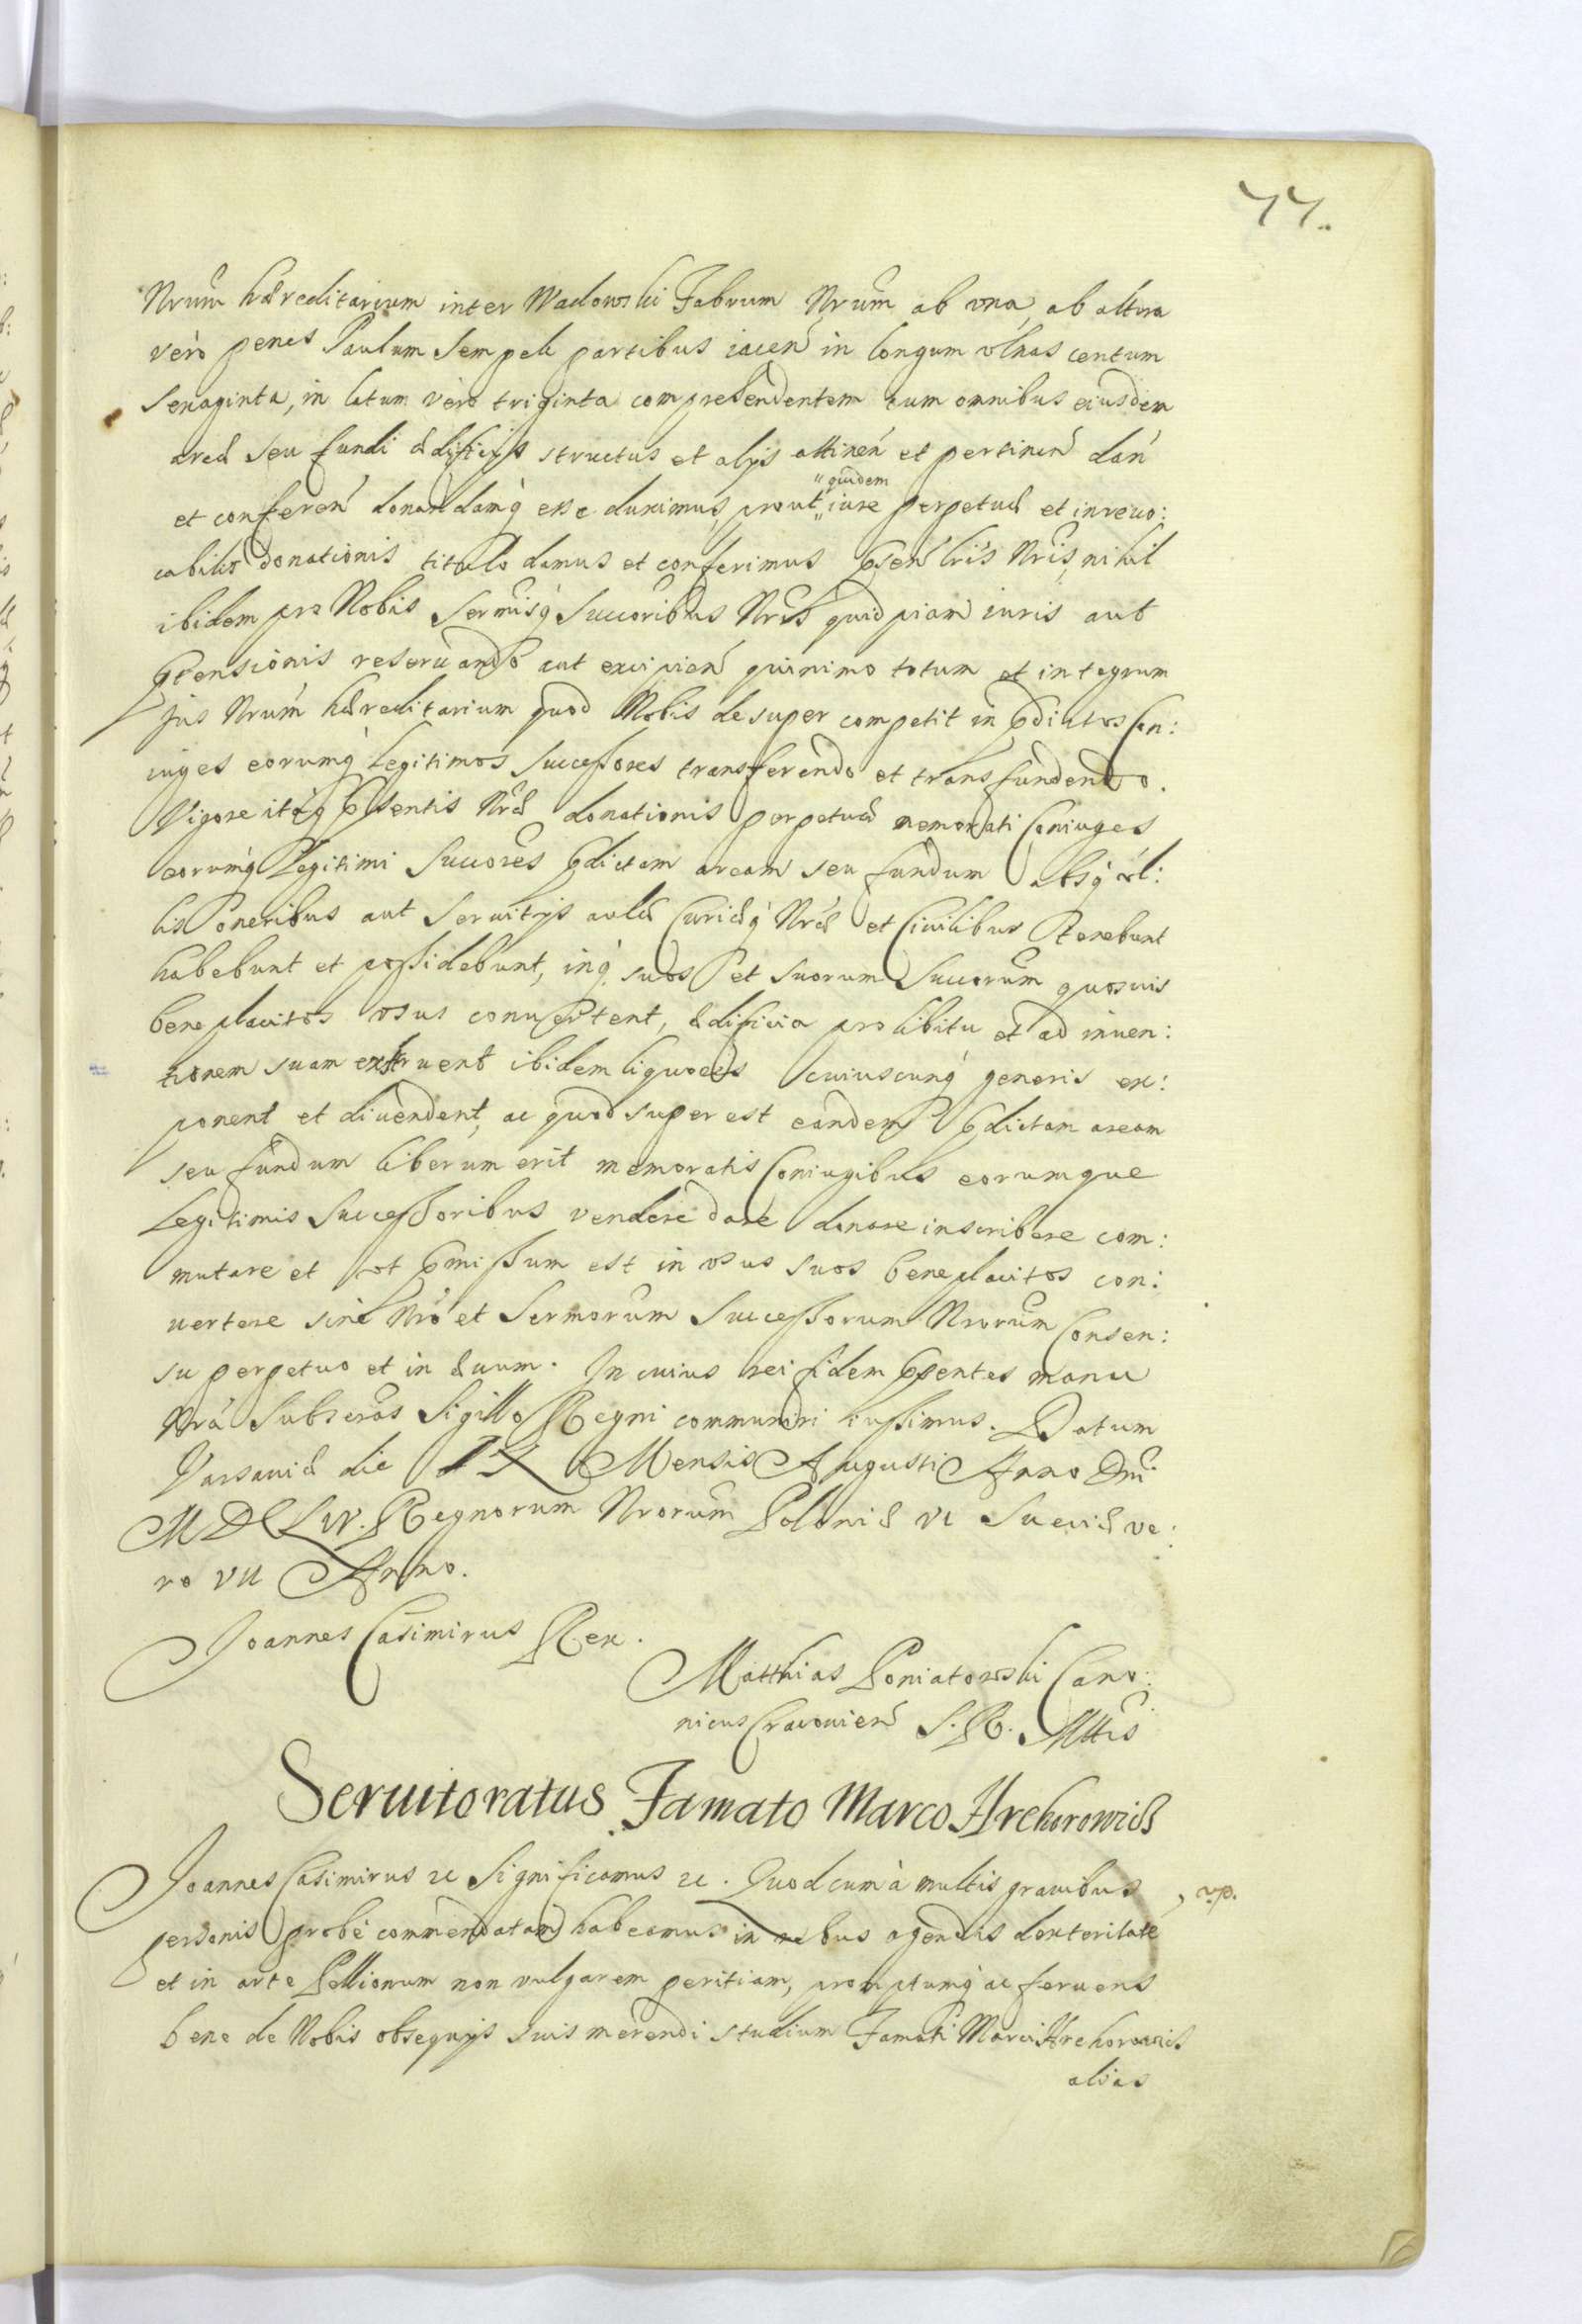 77.
Nrum hæreditarium inter Wadowski Fabrum Nrum ab vna, ab altera
verò penes Paulum Sempek partibus iacen in longum vlnas centum
sexaginta, in latum verò triginta comprehendentem cum omnibus eiusdem
areæ seu fundi ædificijs structus et alijs attinen et pertinen dan
quidem
et conferen donandamq esse duximus, prout iure perpetuæ et irreuo:
cabilis donationis titulo damus et conferimus pñsen lris Nris, nihil
ibidem pro Nobis Sermisq Succoribus Nris quidpiam iuris aut
ptensionis reseruando aut excipien quinimo totum et integrum
jus Nrum hæreditarium quod Nobis desuper competit in pdictos Con:
iuges eorumq Legitimos Successores transferendo et transfundendo.
Vigore itaq psentis Nræ donationis perpetuæ memorati Coniuges
eorumq Legitimi Succores pdictam aream seu fundum absq vl:
lis oneribus aut Seruitijs aulæ Curiæq Nræ et Ciuilibus tenebunt
habebunt et possidebunt, inq suos et suorum Succorum quosuis
beneplacitos vsus conuertent, ædificia pro libitu et ad inuen:
tionem suam extruent ibidem liquores cuiuscunq generis ex:
ponent et diuendent, ac quod superest eandem pdictam aream
seu fundum liberum erit memoratis Coniugibus eorumque
Legitimis Successoribus vendere dare donare inscribere com:
mutare et vt pmissum est in vsus suos beneplacitos con:
uertere sine Nro et Sermorum Successorum Nrorum Consen:
su perpetuo et in æuum. In cuius rei fidem psentes manu
Nrâ Subscras Sigillo Regni communiri iussimus. Datum
Varsauiæ die Mensis Augusti Anno Dni
MDCLIV. Regnorum Nrorum Poloniæ VI Sueciæ ve:
ro VII Anno.
Joannes Casimirus Rex.
Matthias Poniatowski Cano:
nicus Cracouien S. R. Mttis
Seruitoratus Famato Marco Hrehorowicz
Joannes Casimirus etc Significamus etc. Quod cum à multis grauibus
personis probè commendatam habeamus in rebus agendis dexteritatē
et in arte Pellionum non vulgarem peritiam, promptumq ac feruens
bene de Nobis obsequijs suis merendi studium Famati Marci Hrehorowicz
alias